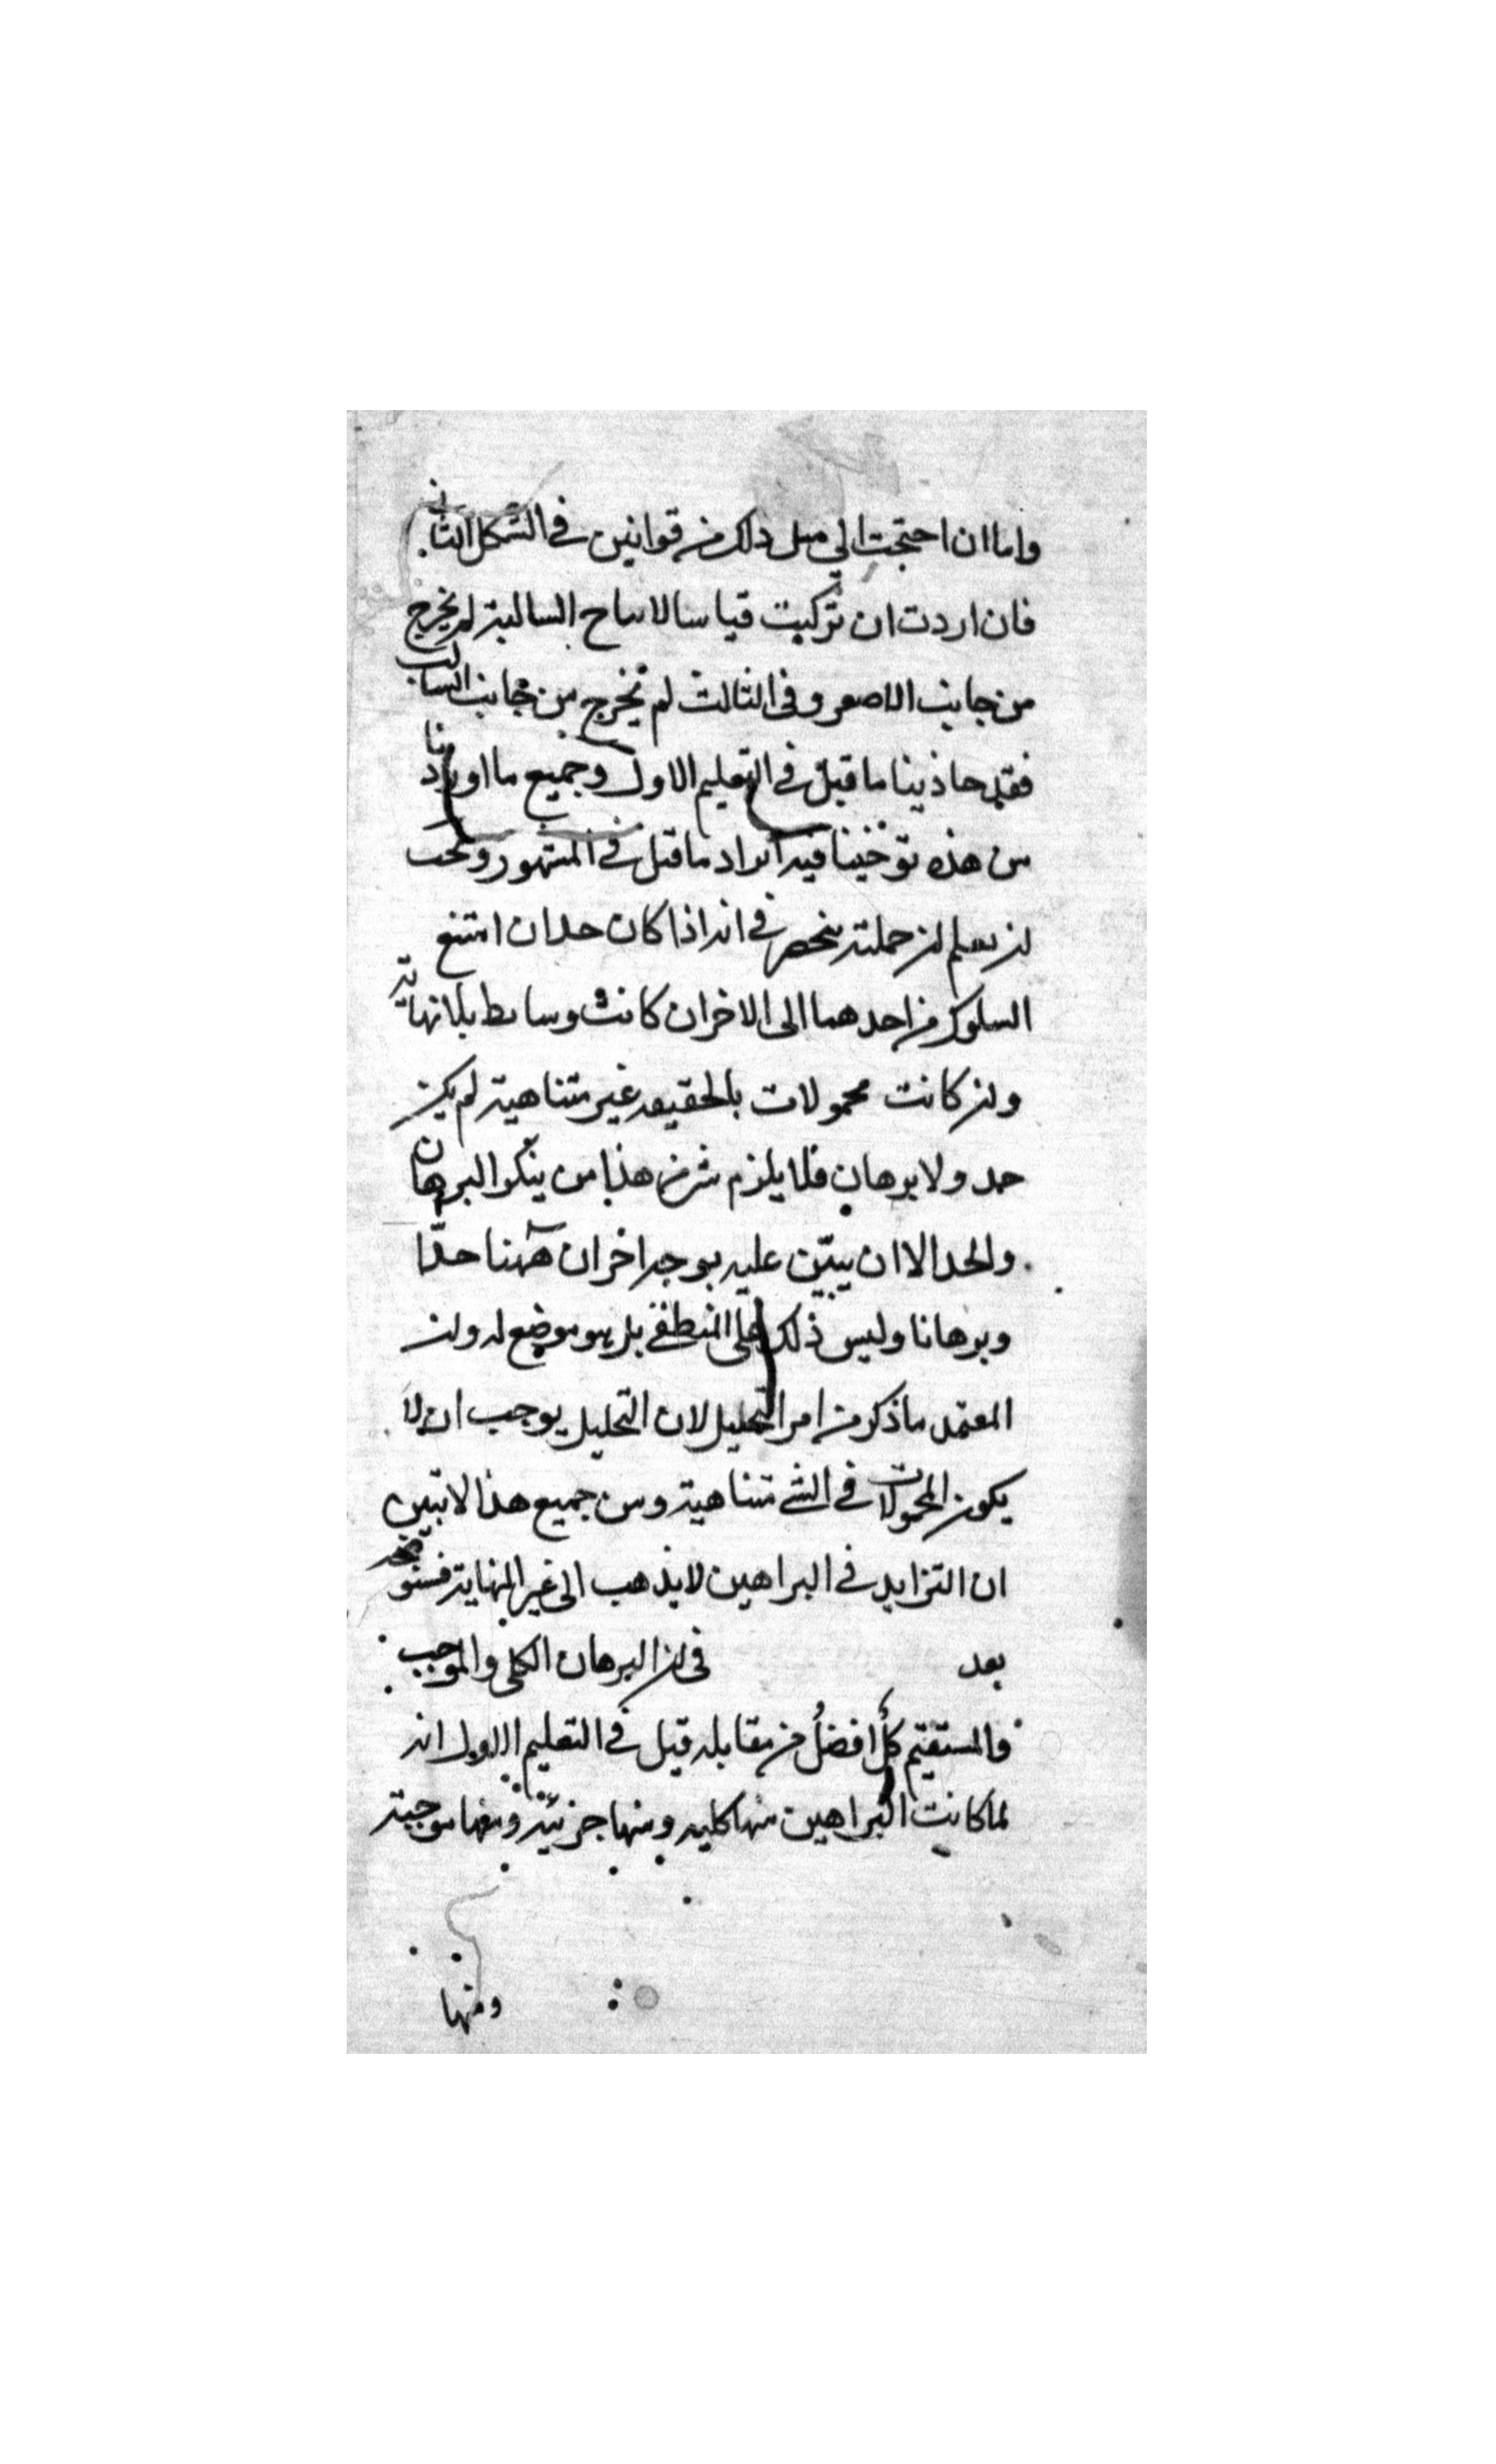 واما ان احتجت الى مثل ذلك من قوانين في الشكل الثاني
فان اردت ان تركبت قياسا لانتاح السالبة لم يخرج
من جانب الاصغر وفي الثالث لم يخرج من جانب السالب
فقد حاذينا ما قيل في التعليم الاول وجميع ما اوردنا
من هذه توخينا فيه ايراد ما قيل في المشهور ويجب
ان يعلم ان جملته ينحصر في انه اذا كان حدان امتنع
السلوك من احدهما الى الاخر ان كانت وسايط بلا نهاية
وان كانت محمولات بالحقيقه غير متناهية لم يكن
حد ولا برهان فلا يلزم شئ من هذا من ينكر البرهان
والحد الا ان يبيّن عليه بوجه اخر ان ههنا حدّا
وبرهانا وليس ذلك على المنطقي بل هو موضع له وان
المعتمد ما ذكر من امر التحليل لان التحليل يوجب ان لا
يكون المحمولات في الشئ متناهية ومن جميع هذا لا تبين
ان التزايد في البراهين لا يذهب الى غير النهاية فسنوضحه
بعد في ان البرهان الكلى والموجب
والمستقيم كلٌ افضلُ من مقابله قيل في التعليم الاول انه
لما كانت البراهين منها كليه ومنها جزئية ومنها موجبة
ومنها